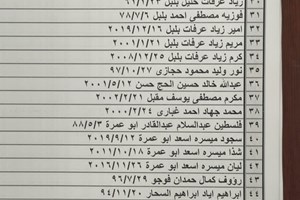 ٣٠ زياد عرفات خليل بلبل ٦١/١/٢٣
٣١ فوزيه مصطفى احمد بلبل ٧٨/٧/٦
٣٢ امير زياد عرفات بلبل ٢٠١٩/١٢/١٦
٣٣ مريم زياد عرفات بلبل ٢٠٠١/١/٢١
٣٤ كرم زياد عرفات بلبل ٢٠٠٨/١٢/٢٥
٣٥ نور وليد محمود حجازي ٩٧/١٠/٢٧
٣٦ عبدالله خالد حسين الحج حسن ٢٠٠١/٥/١٢
٣٧ مكرم مصطفى يوسف مقبل ٢٠٠٠/٢/٢١
٣٨ محمد جهاد احمد غباري ٢٠٠٠/٢/٢٤
٣٩ فلسطين عبدالسلام عبدالقادر ابو عمرة ٨٨/٥/٣
٤٠ سجود ميسره اسعد ابو عمرة ٢٠١٩/٩/١٢
٤١ شذا ميسره اسعد ابو عمرة ٢٠١١/١٠/١٨
٤٢ ليان ميسره اسعد ابو عمرة ٢٠١٦/١١/٢٦
٤٣ رؤوف كمال حمدان فوجو ٩٦/٧/٢٩
٤٤ ابراهيم اياد ابراهيم السحار ٩٤/١١/٢٠